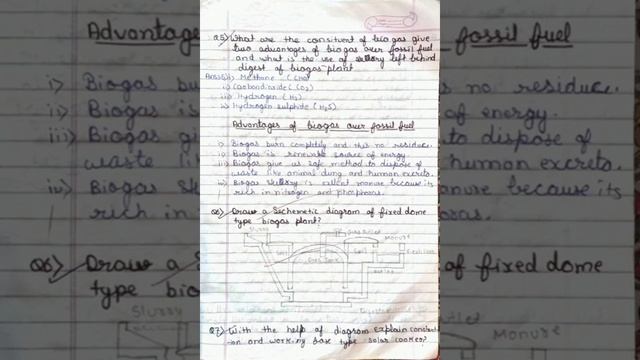 Q5) What are the consituent of bio gas give
two advantages of bio gas over fossil fuel
and what is the use of left behind
digest of biogas plant
Ans5) i) Methane (CH4)
ii) Carbondioxide (CO2)
iii) Hydrogen (H2)
iv) Hydrogen sulphide (H2S)
Advantages of biogas over fossil fuel
i) Biogas burn completely and this no residue.
ii) Biogas is renewable source of energy.
iii) Biogas give us safe method to dispose of
waste like animal dung and human excreta.
iv) Biogas is manure because its
rich in nitrogen and
Q6) Draw a Sechemetic diagram of fixed dome
type biogas plant?
Slurry
Gas outlet
Manure
Q7) With the help of diagram explain construct
-ion and working box type solar cooker?
Advantages
fossil fuel
i) Biogas bu
s no residue.
ii) Biogas is
of energy.
iii) Biogas giv
to dispose of
waste like
human excreta.
iv) Biogas
anure because its
rich in
Q6) Draw a S
of fixed dome
type bio
Slurry
utlet
Manure